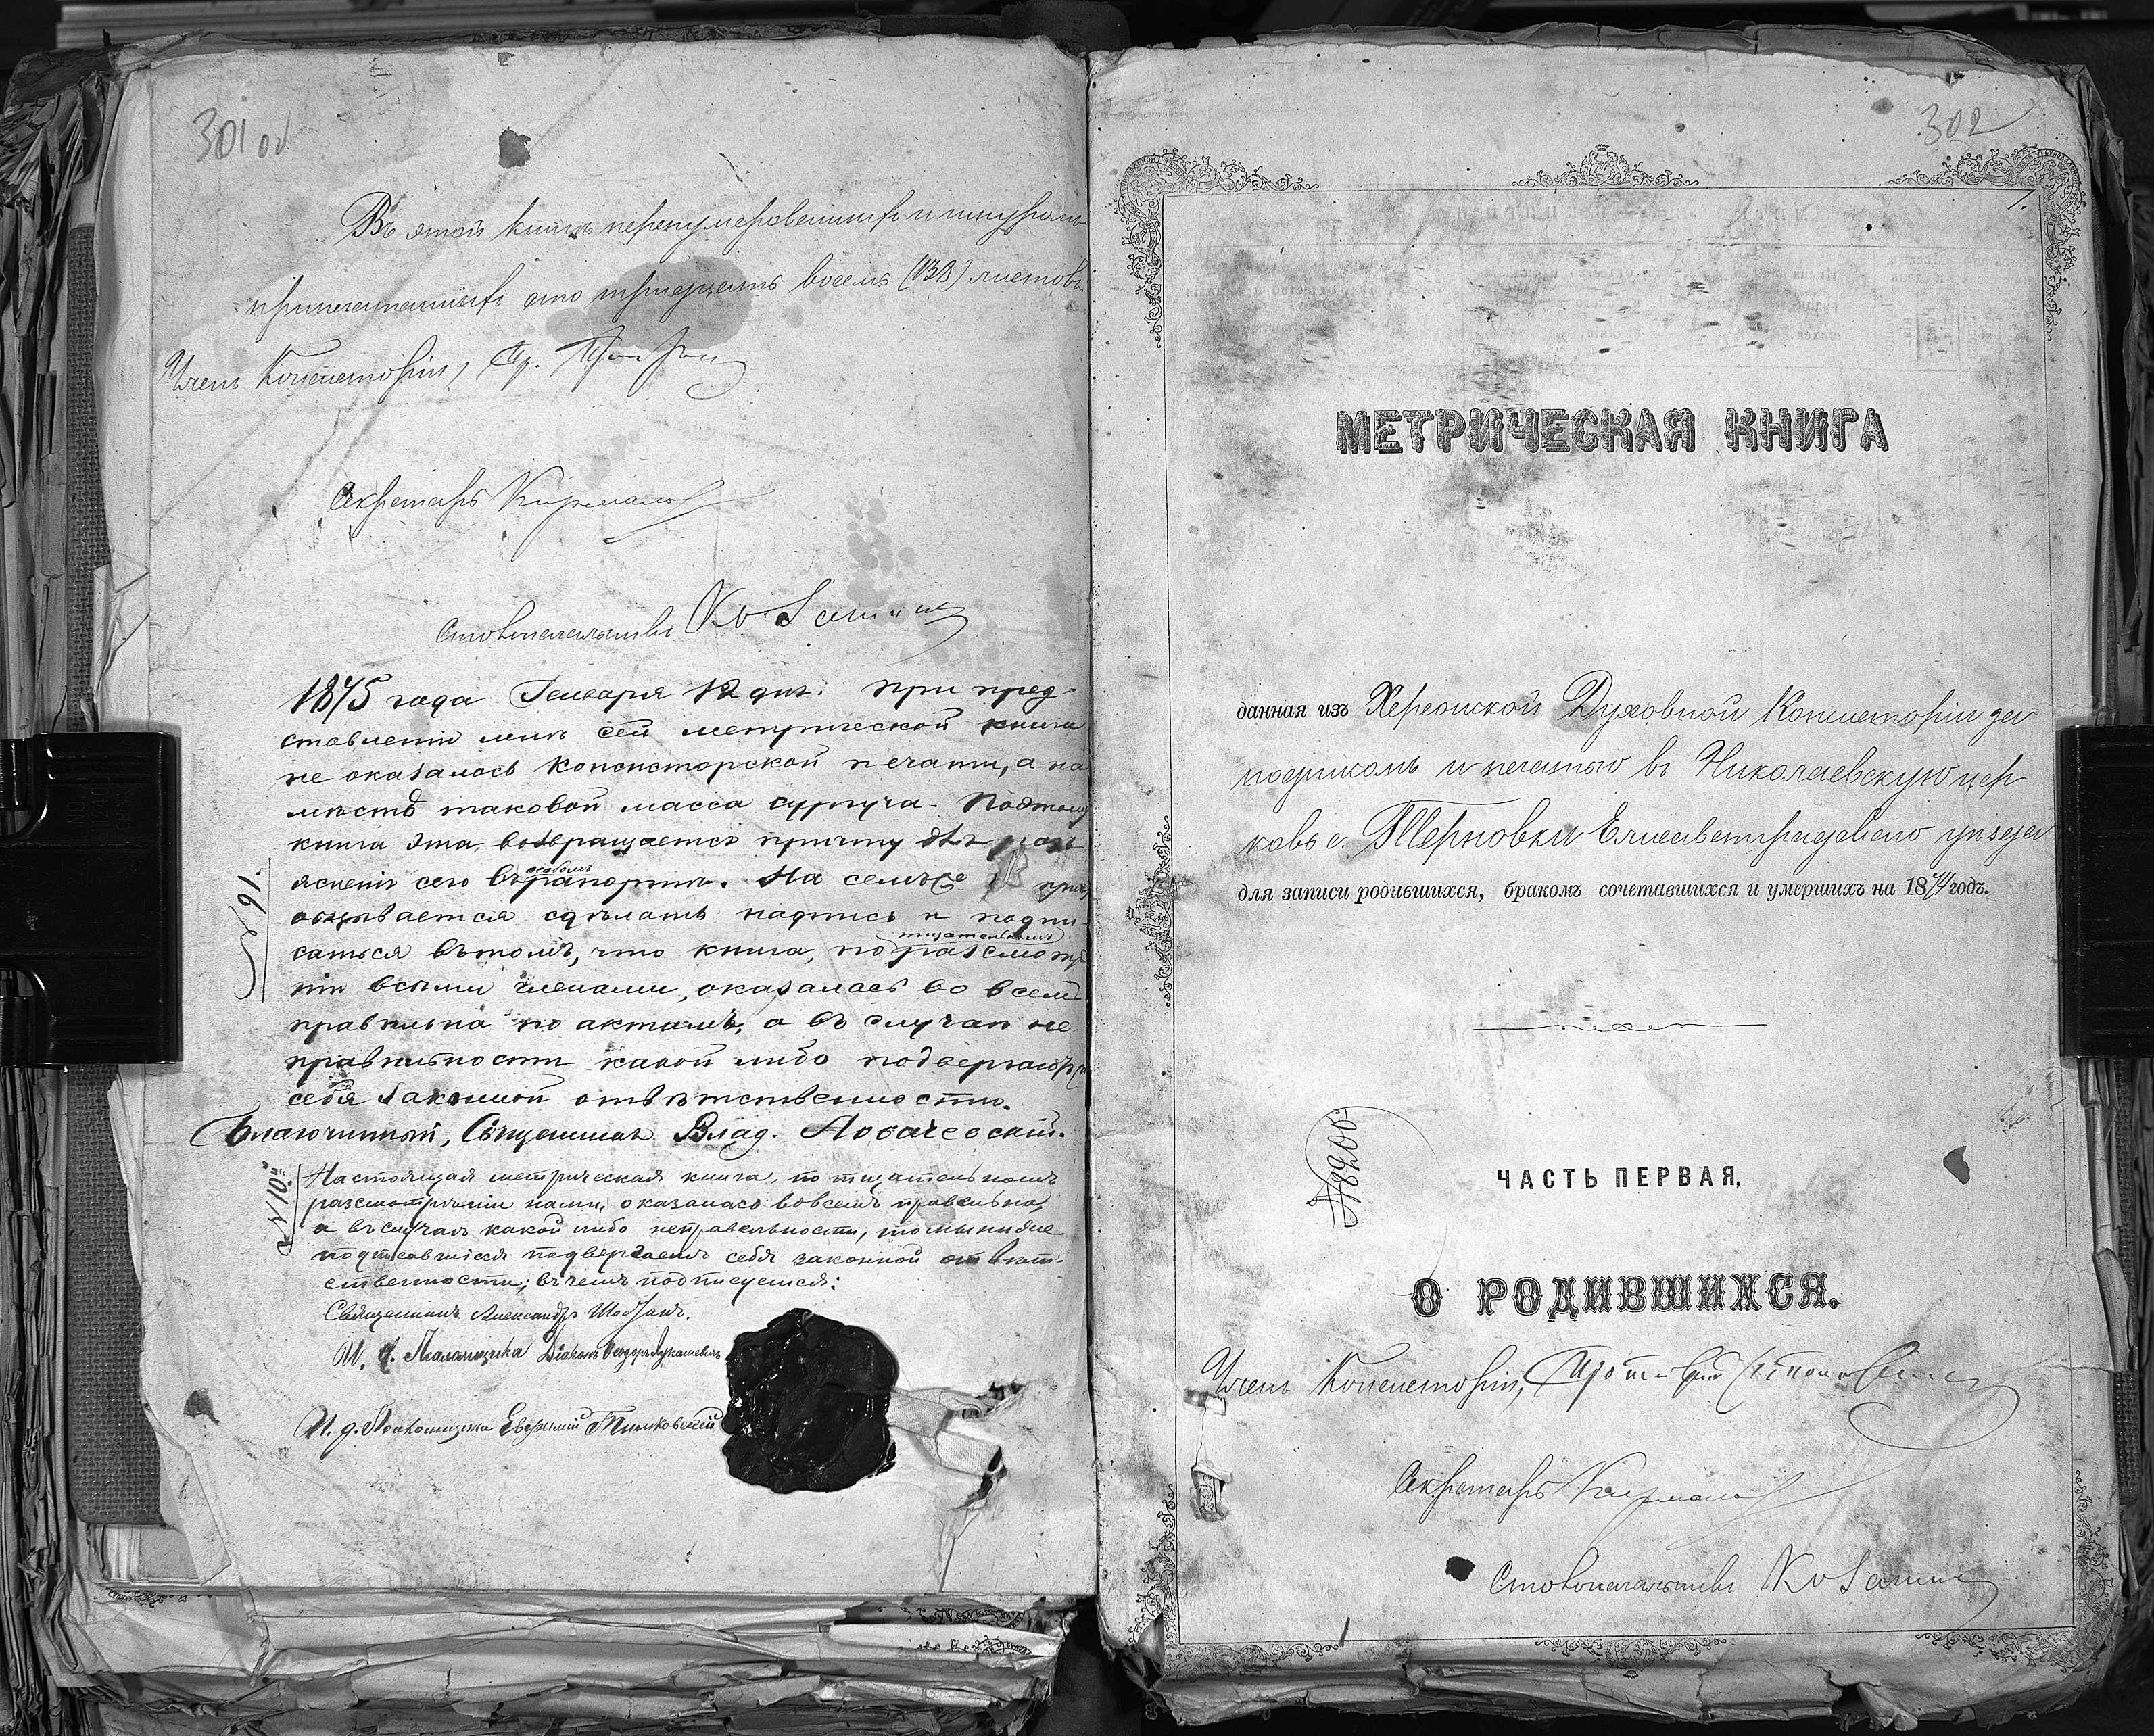 301 об
Въ этой книгѣ перенумерованныхъ и шнуромъ
припечатанныхъ сто тридцать восемь (138) листовъ.
Членъ Консисторіи,
Секретарь
Столоначальникъ
1875 года Генваря 12 дня. При пред-
ставленіи мнѣ сей метрической книги
не оказалось консисторской печати, а на
мѣстѣ таковой масса сургуча. Поэтому
книга эта возвращается причту для разъ
ясненія сего въ особомъ рапортѣ. На семъ же
обязывается сдѣлать надпись и подпи-
саться въ томъ, что книга, по тщательномъ разсмотрѣ
ніи всѣми членами, оказалась во всемъ
правильна по актамъ, а въ случаѣ не
правильности какой либо подвергаютъ
себя законной отвѣтственности.
Благочинный, Священникъ Влад. Лобачевскій.
№ 91.
Настоящая метрическая книга, по тщательномъ
разсмотрѣніи нами, оказалась во всемъ правильна,
а въ случаѣ какой либо неправельности, то мы ниже
подписавшіеся подвергаемъ себя законной отвѣт-
ственности; въ чемъ подписуемся:
№ 10й
Священникъ Александръ
И. д. Псаломщика Діаконъ Ѳеодоръ Лукашевичъ
И. д. Псаломщика Евфимій
302
1.
МЕТРИЧЕСКАЯ КНИГА
данная изъ Херсонской Духовной Консисторіи за
подписомъ и печатью въ Николаевскую цер
ковь с. Терновки Елисаветградскаго уѣзда
для записи родившихся, бракомъ сочетавшихся и умершихъ на 1874 годъ.
№ 8200.
ЧАСТЬ ПЕРВАЯ,
О РОДИВШИХСЯ.
Членъ Консисторіи,
Секретарь
Столоначальникъ